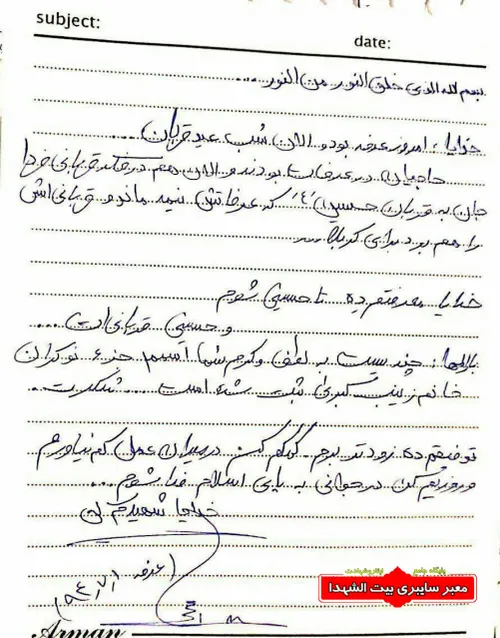 subject:
date:
بسم الله الذی خلق النور من النور ...
خدایا؛ امروز عرفه بود و الان شب عید قربان ...
حاجیان در عرفات بودند و الان هم در فکر قربانی فردا
جان به قربان حسین (ع) که عرفاتش نیمه ماند و قربانی‌اش
را هم برد برای کربلا ...
خدایا معرفتم ده تا حسینی شوم
و حسینی قربانی‌ات ...
بارالها؛ چندیست به لطف و کرم شما اسمم جزء نوکران
خانم زینب کبری ثبت شده است ... شکرت ...
توفیقم ده زودتر بروم. کمکم کن در میدان عمل کم نیاورم
و روزیم کن در جوانی به پای اسلام فدا شوم ...
خدایا شهیدم کن
عرفه
۹۴/۷/۱
پایگاه جامع ایثار و شهادت
معبر سایبری بیت الشهدا
Arman